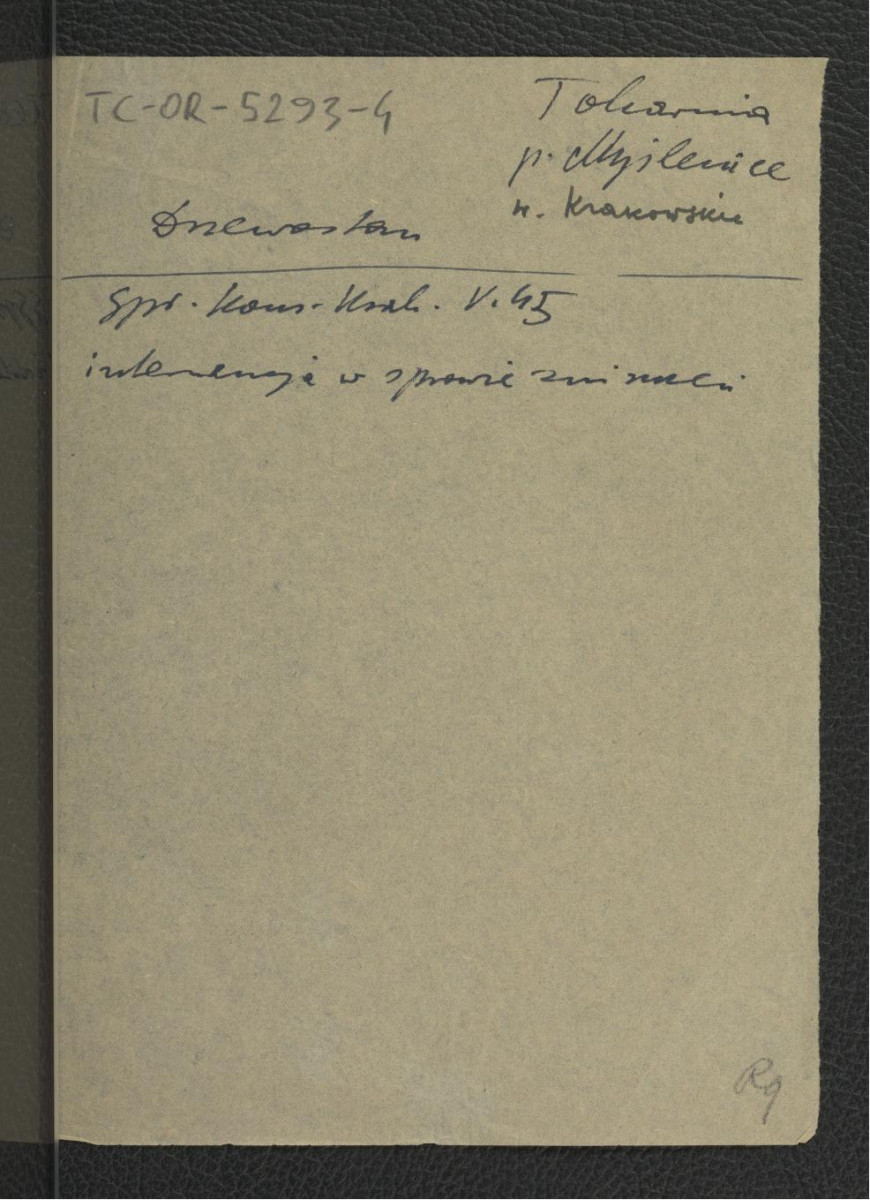 TC-OR-5293-4
Tokarnia
p. Myślenice
w. Krakowskie
Drzewostan
Spr. Kons. Krak. V.45
interwencja w sprawie zniszczeń
Rg